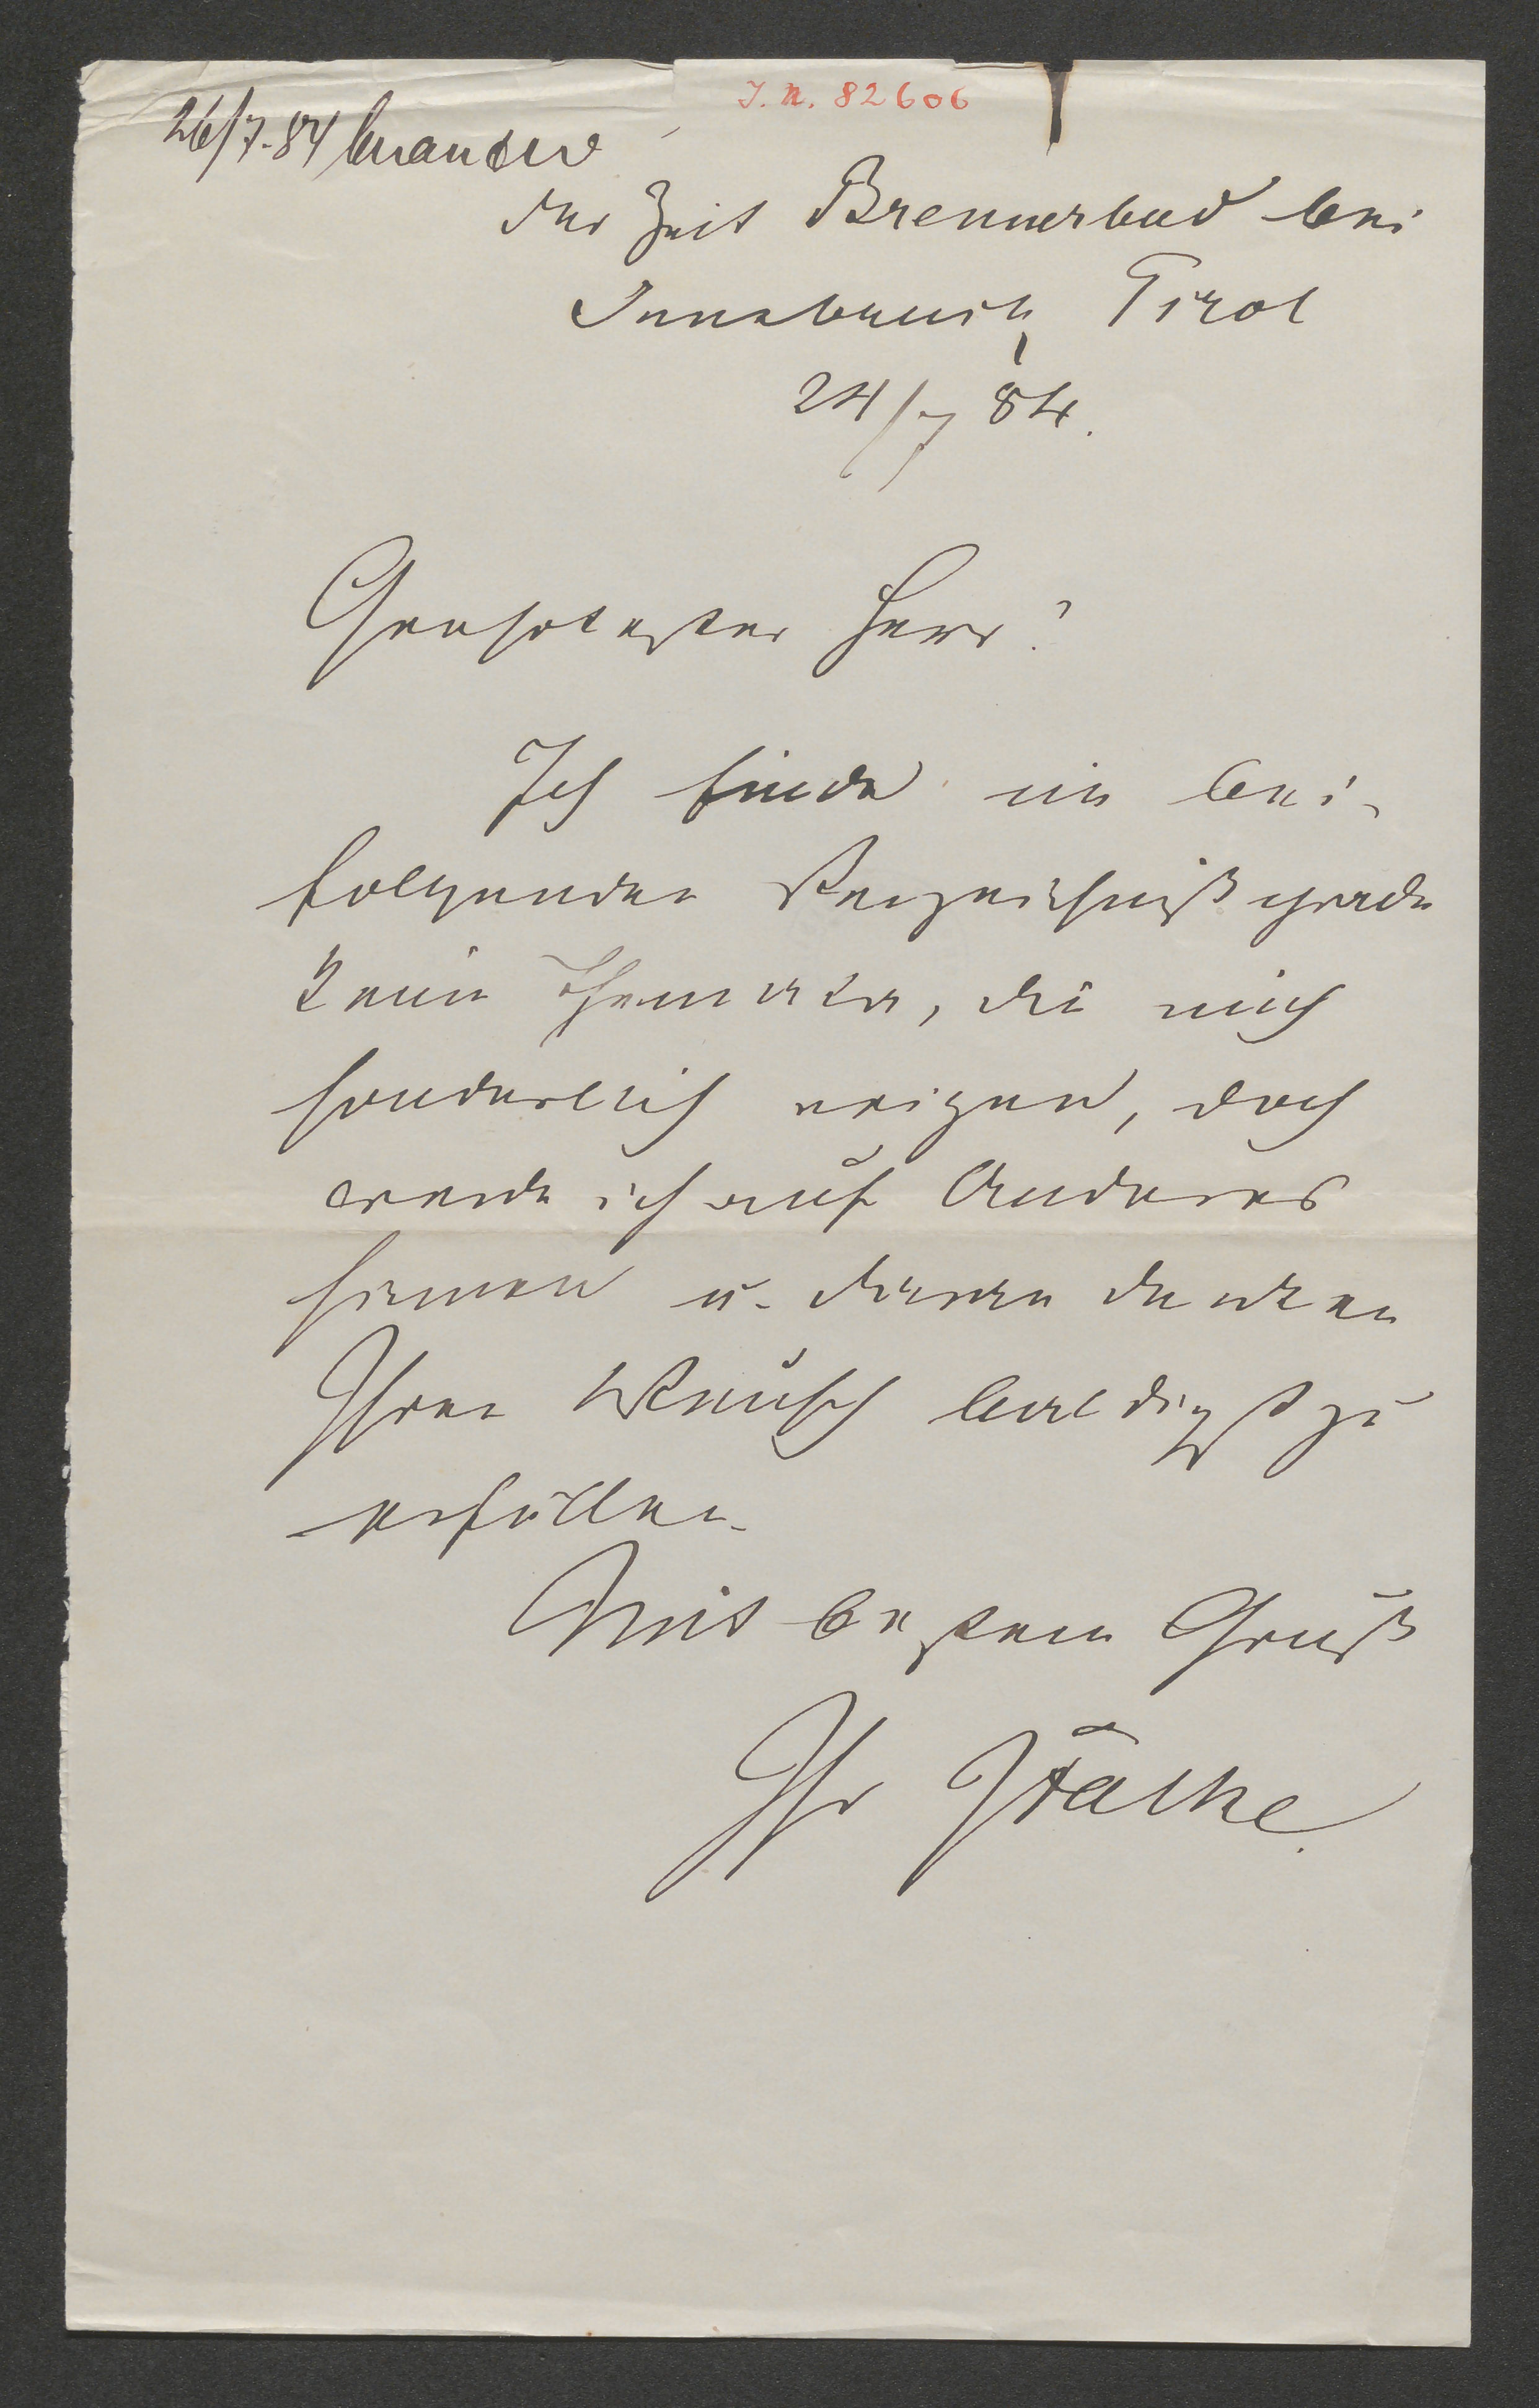 J. N. 82606
26/7. 84
der Zeit Brennerbad bei
Innsbruck, Tirol
24/7 84.
Geehrtester Herr!
Ich finde im bei-
folgenden Verzeichniß grade
keine Themata, die mich
sonderlich reizen, doch
werde ich auf Anderes
sinnen u. daran denken
Ihren Wunsch baldigst zu
erfüllen.
Mit bestem Gruß
Ihr